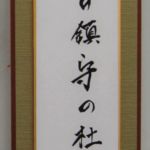 鎮守の杜